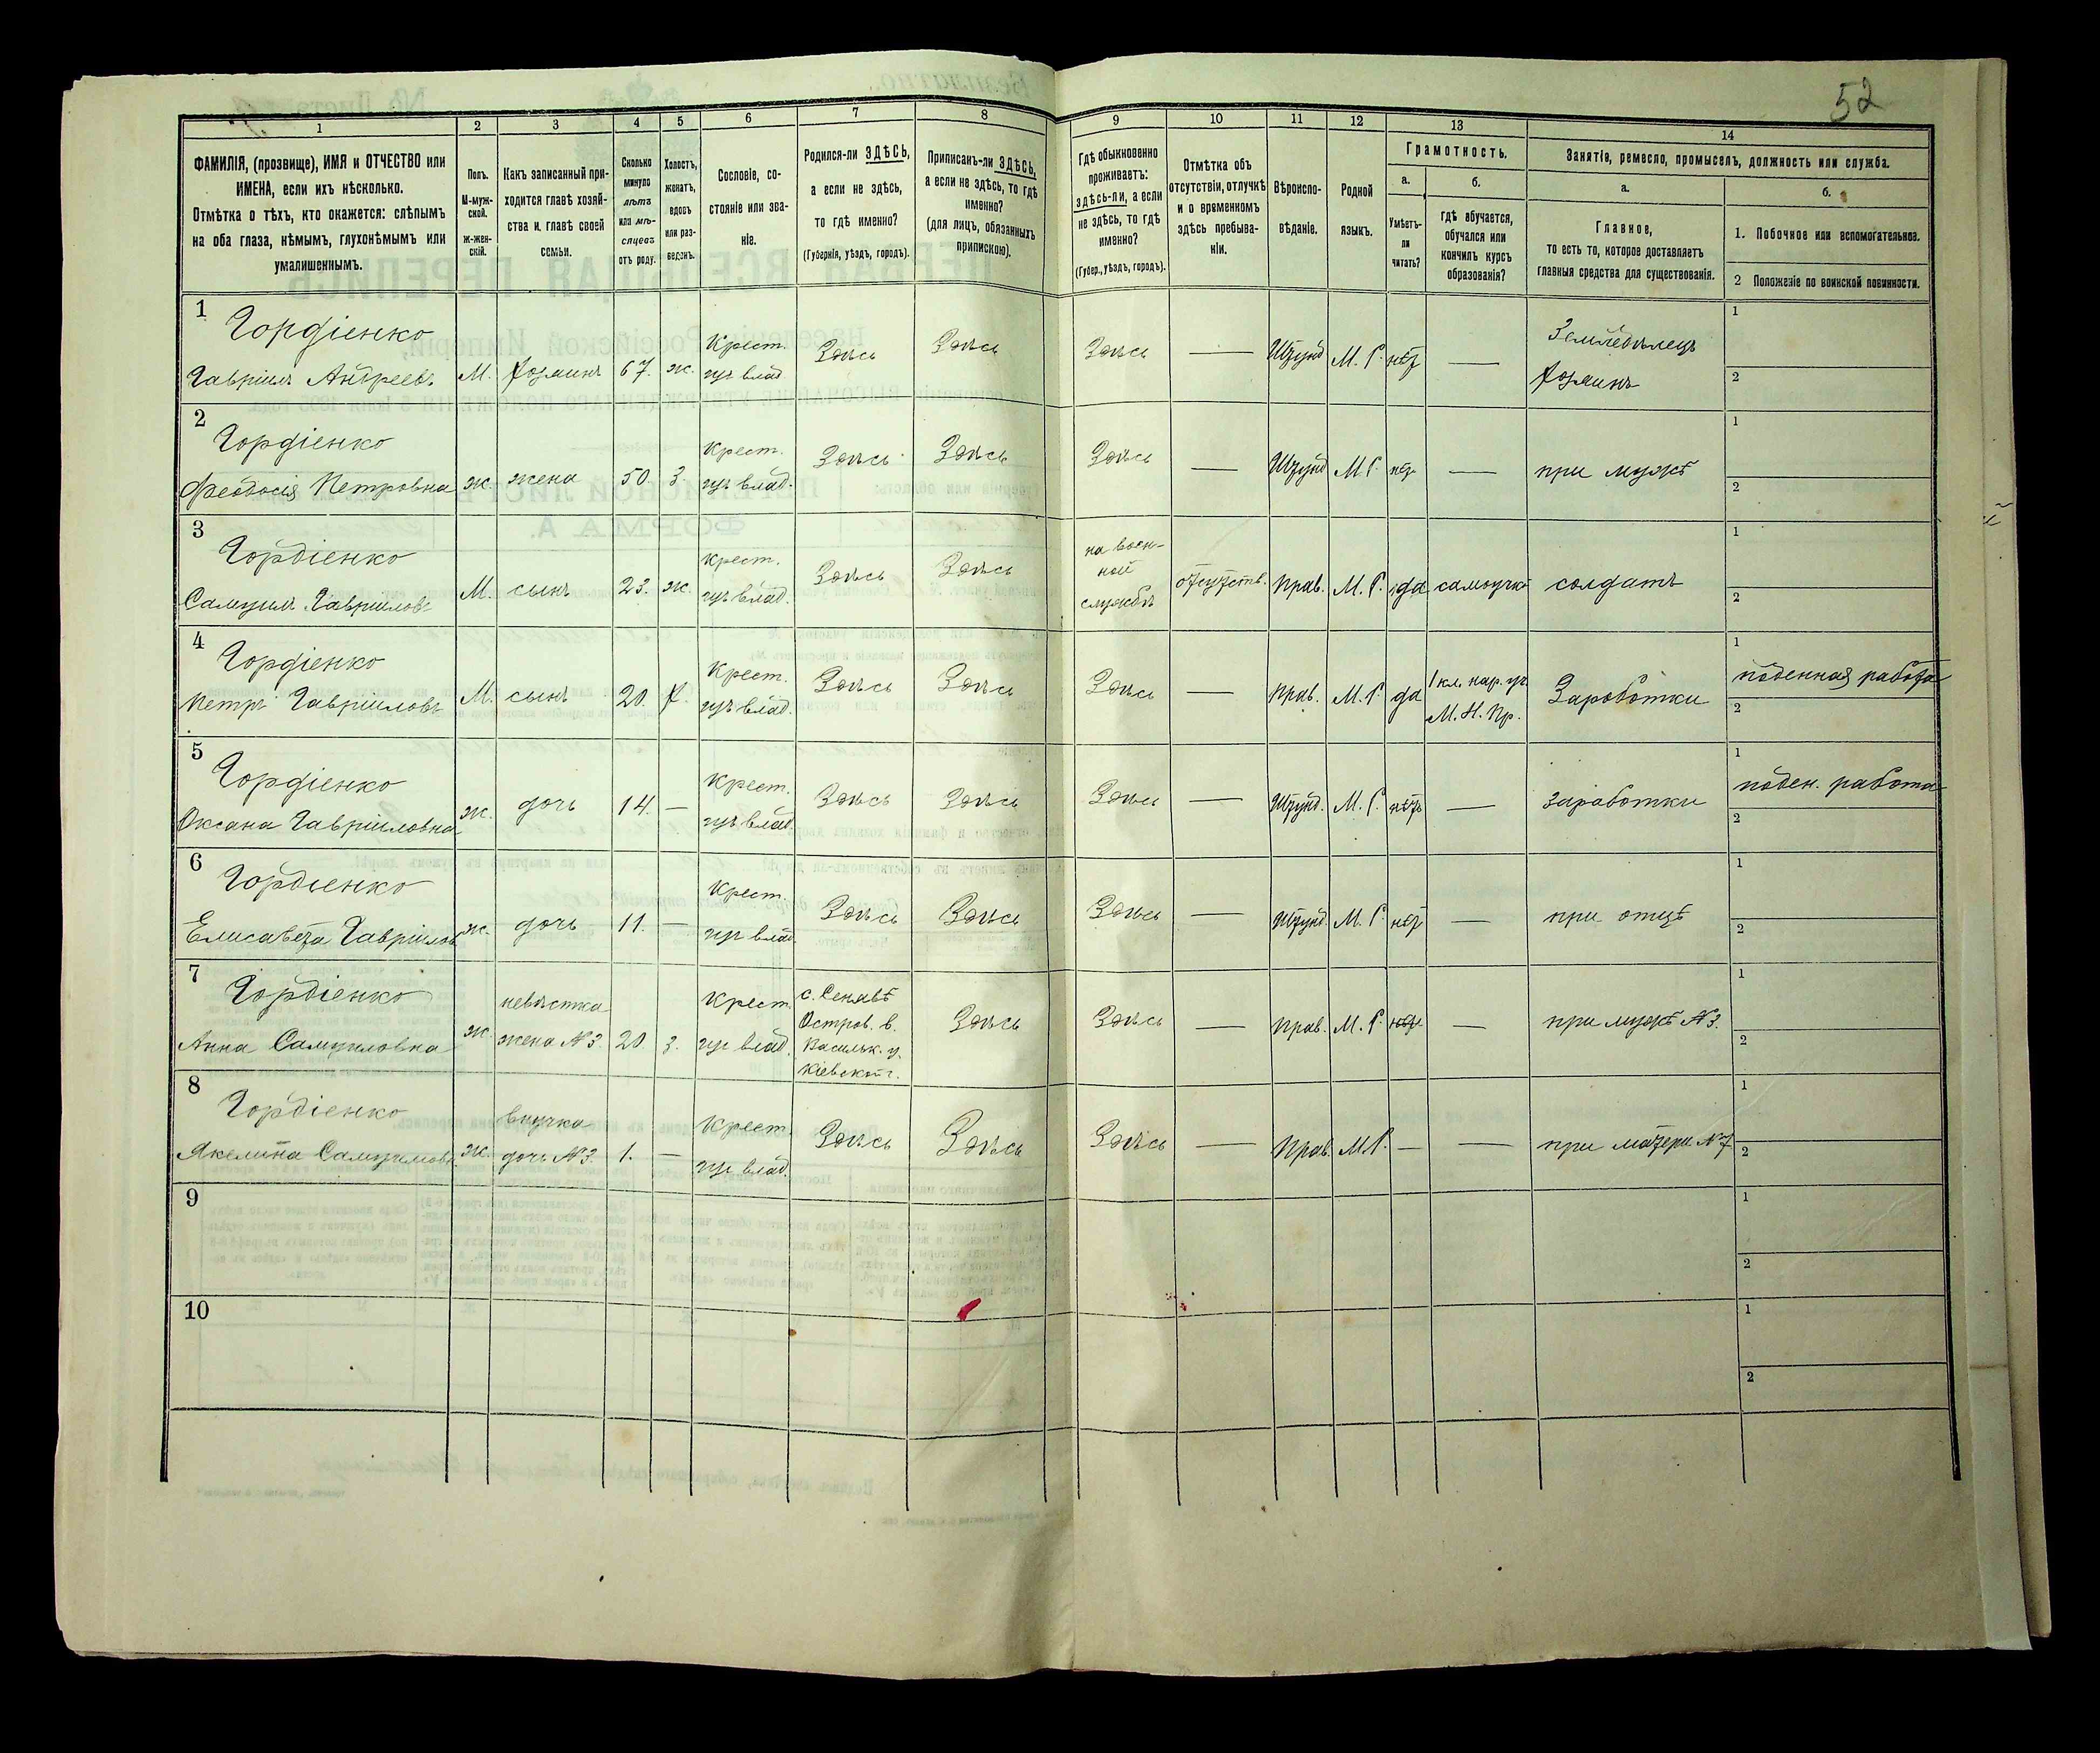 52
1
2
3
4
5
6
7
8
9
10
11
12
13
14
ФАМИЛІЯ, (прозвище), ИМЯ и ОТЧЕСТВО или
ИМЕНА, если ихъ нѣсколько.
Отмѣтка о тѣхъ, кто окажется: слѣпымъ
на оба глаза, нѣмымъ, глухонѣмымъ или
умалишеннымъ.
Полъ.
М-муж-
ской.
Ж-жен-
скій.
Какъ записанный при-
ходится главѣ хозяй-
ства и главѣ своей
семьи.
Сколько
минуло
лѣтъ
или мѣ-
сяцевъ
отъ роду.
Холостъ,
женатъ,
вдовъ
или раз-
веденъ.
Сословіе, со-
стояніе или зва-
ніе.
Родился-ли ЗДѢСЬ,
а если не здѣсь,
то гдѣ именно?
(Губернія, уѣздъ, городъ).
Приписанъ-ли ЗДѢСЬ,
а если не здѣсь, то гдѣ
именно?
(для лицъ, обязанныхъ
припискою).
Гдѣ обыкновенно
проживаетъ:
здѣсь-ли, а если
не здѣсь, то гдѣ
именно?
(Губер., уѣздъ, городъ).
Отмѣтка объ
отсутствіи, отлучкѣ
и о временномъ
здѣсь пребыва-
ніи.
Вѣроиспо-
вѣданіе.
Родной
языкъ.
Грамотность.
а.
Умѣетъ-
ли
читать?
б.
гдѣ обучается,
обучался или
кончилъ курсъ
образованія?
Занятіе, ремесло, промыселъ, должность или служба.
а.
Главное,
то есть то, которое доставляетъ
главныя средства для существованія.
б.
1. Побочное или вспомогательное.
2 Положеніе по воинской повинности.
1
Гордіенко
Гавріилъ Андреевъ
М.
Хозяинъ
67.
ж.
Крест.
изъ влад.
Здѣсь
Здѣсь
Здѣсь
—
Штунд
М. Р.
нѣт
—
Земледѣлецъ
Хозяинъ
1
2
2
Гордіенко
Феодосія Петровна
ж.
жена
50.
З.
Крест.
изъ влад.
Здѣсь
Здѣсь
Здѣсь
—
Штунд
М. Р.
нѣт
—
при мужѣ
1
2
3
Гордіенко
Самуилъ Гавріиловъ
М.
сынъ
23.
ж.
Крест.
изъ влад.
Здѣсь
Здѣсь
на воен-
ной
службѣ
отсутств.
Прав.
М. Р.
да
самоучка
солдатъ
1
2
4
Гордіенко
Петръ Гавріиловъ
М.
сынъ
20.
Х.
Крест.
изъ влад.
Здѣсь
Здѣсь
Здѣсь
—
Прав.
М. Р.
да
1 кл. нар. уч.
М. Н. Пр.
Заработки
1
поденная работа
2
5
Гордіенко
Оксана Гавріиловна
ж.
дочь
14.
—
Крест.
изъ влад.
Здѣсь
Здѣсь
Здѣсь
—
Штунд.
М. Р.
нѣтъ
—
заработки
1
поден. работа
2
6
Гордіенко
Елисавета Гавріилов
ж.
дочь
11.
—
Крест.
изъ влад.
Здѣсь
Здѣсь
Здѣсь
—
Штунд.
М. Р.
нѣт
—
при отцѣ
1
2
7
Гордіенко
Анна Самуиловна
ж.
невѣстка
жена №3.
20
з.
Крест.
изъ влад.
с. Сенявѣ
Остров. в.
Васильк. у.
Кіевской г.
Здѣсь
Здѣсь
—
Прав.
М. Р.
нѣт
—
при мужѣ №3.
1
2
8
Гордіенко
Якелина Самуиловн.
ж.
внучка
дочь №3.
1.
—
Крест.
изъ влад.
Здѣсь
Здѣсь
Здѣсь
—
Прав.
М. Р.
—
—
при матери №7
1
2
9
1
2
10
1
2